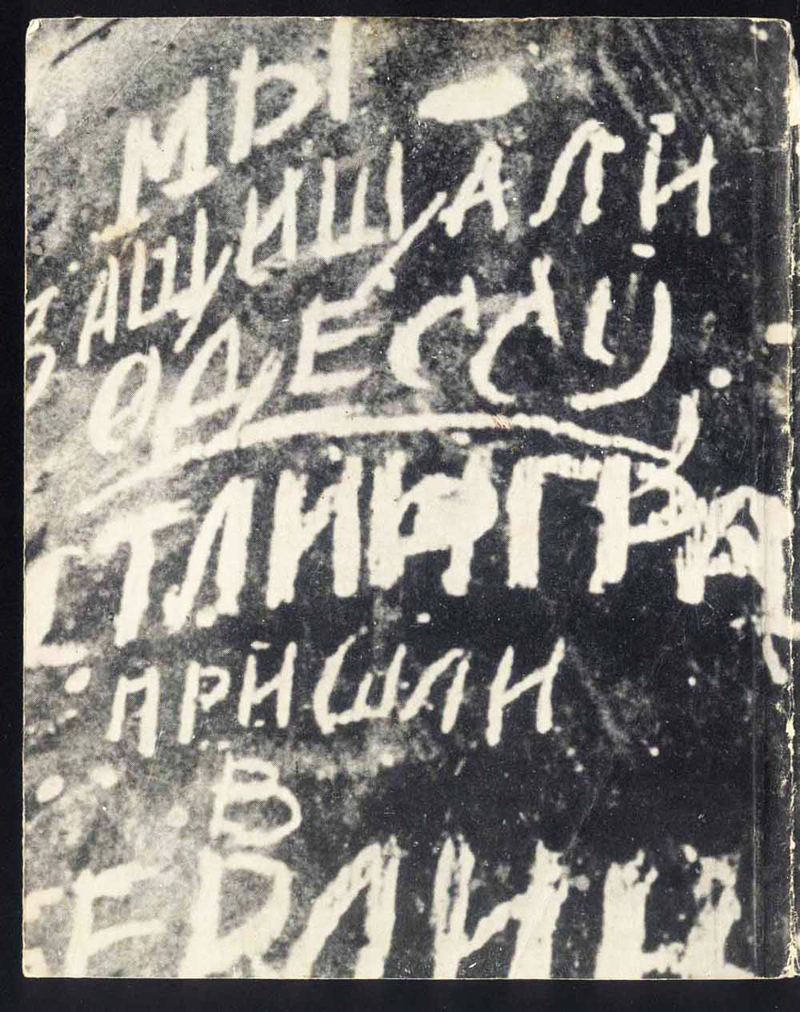 МЫ
ЗАЩИЩАЛИ
ОДЕССУ
СТЛИНГРАД
ПРИШЛИ
В
БЕРЛИН